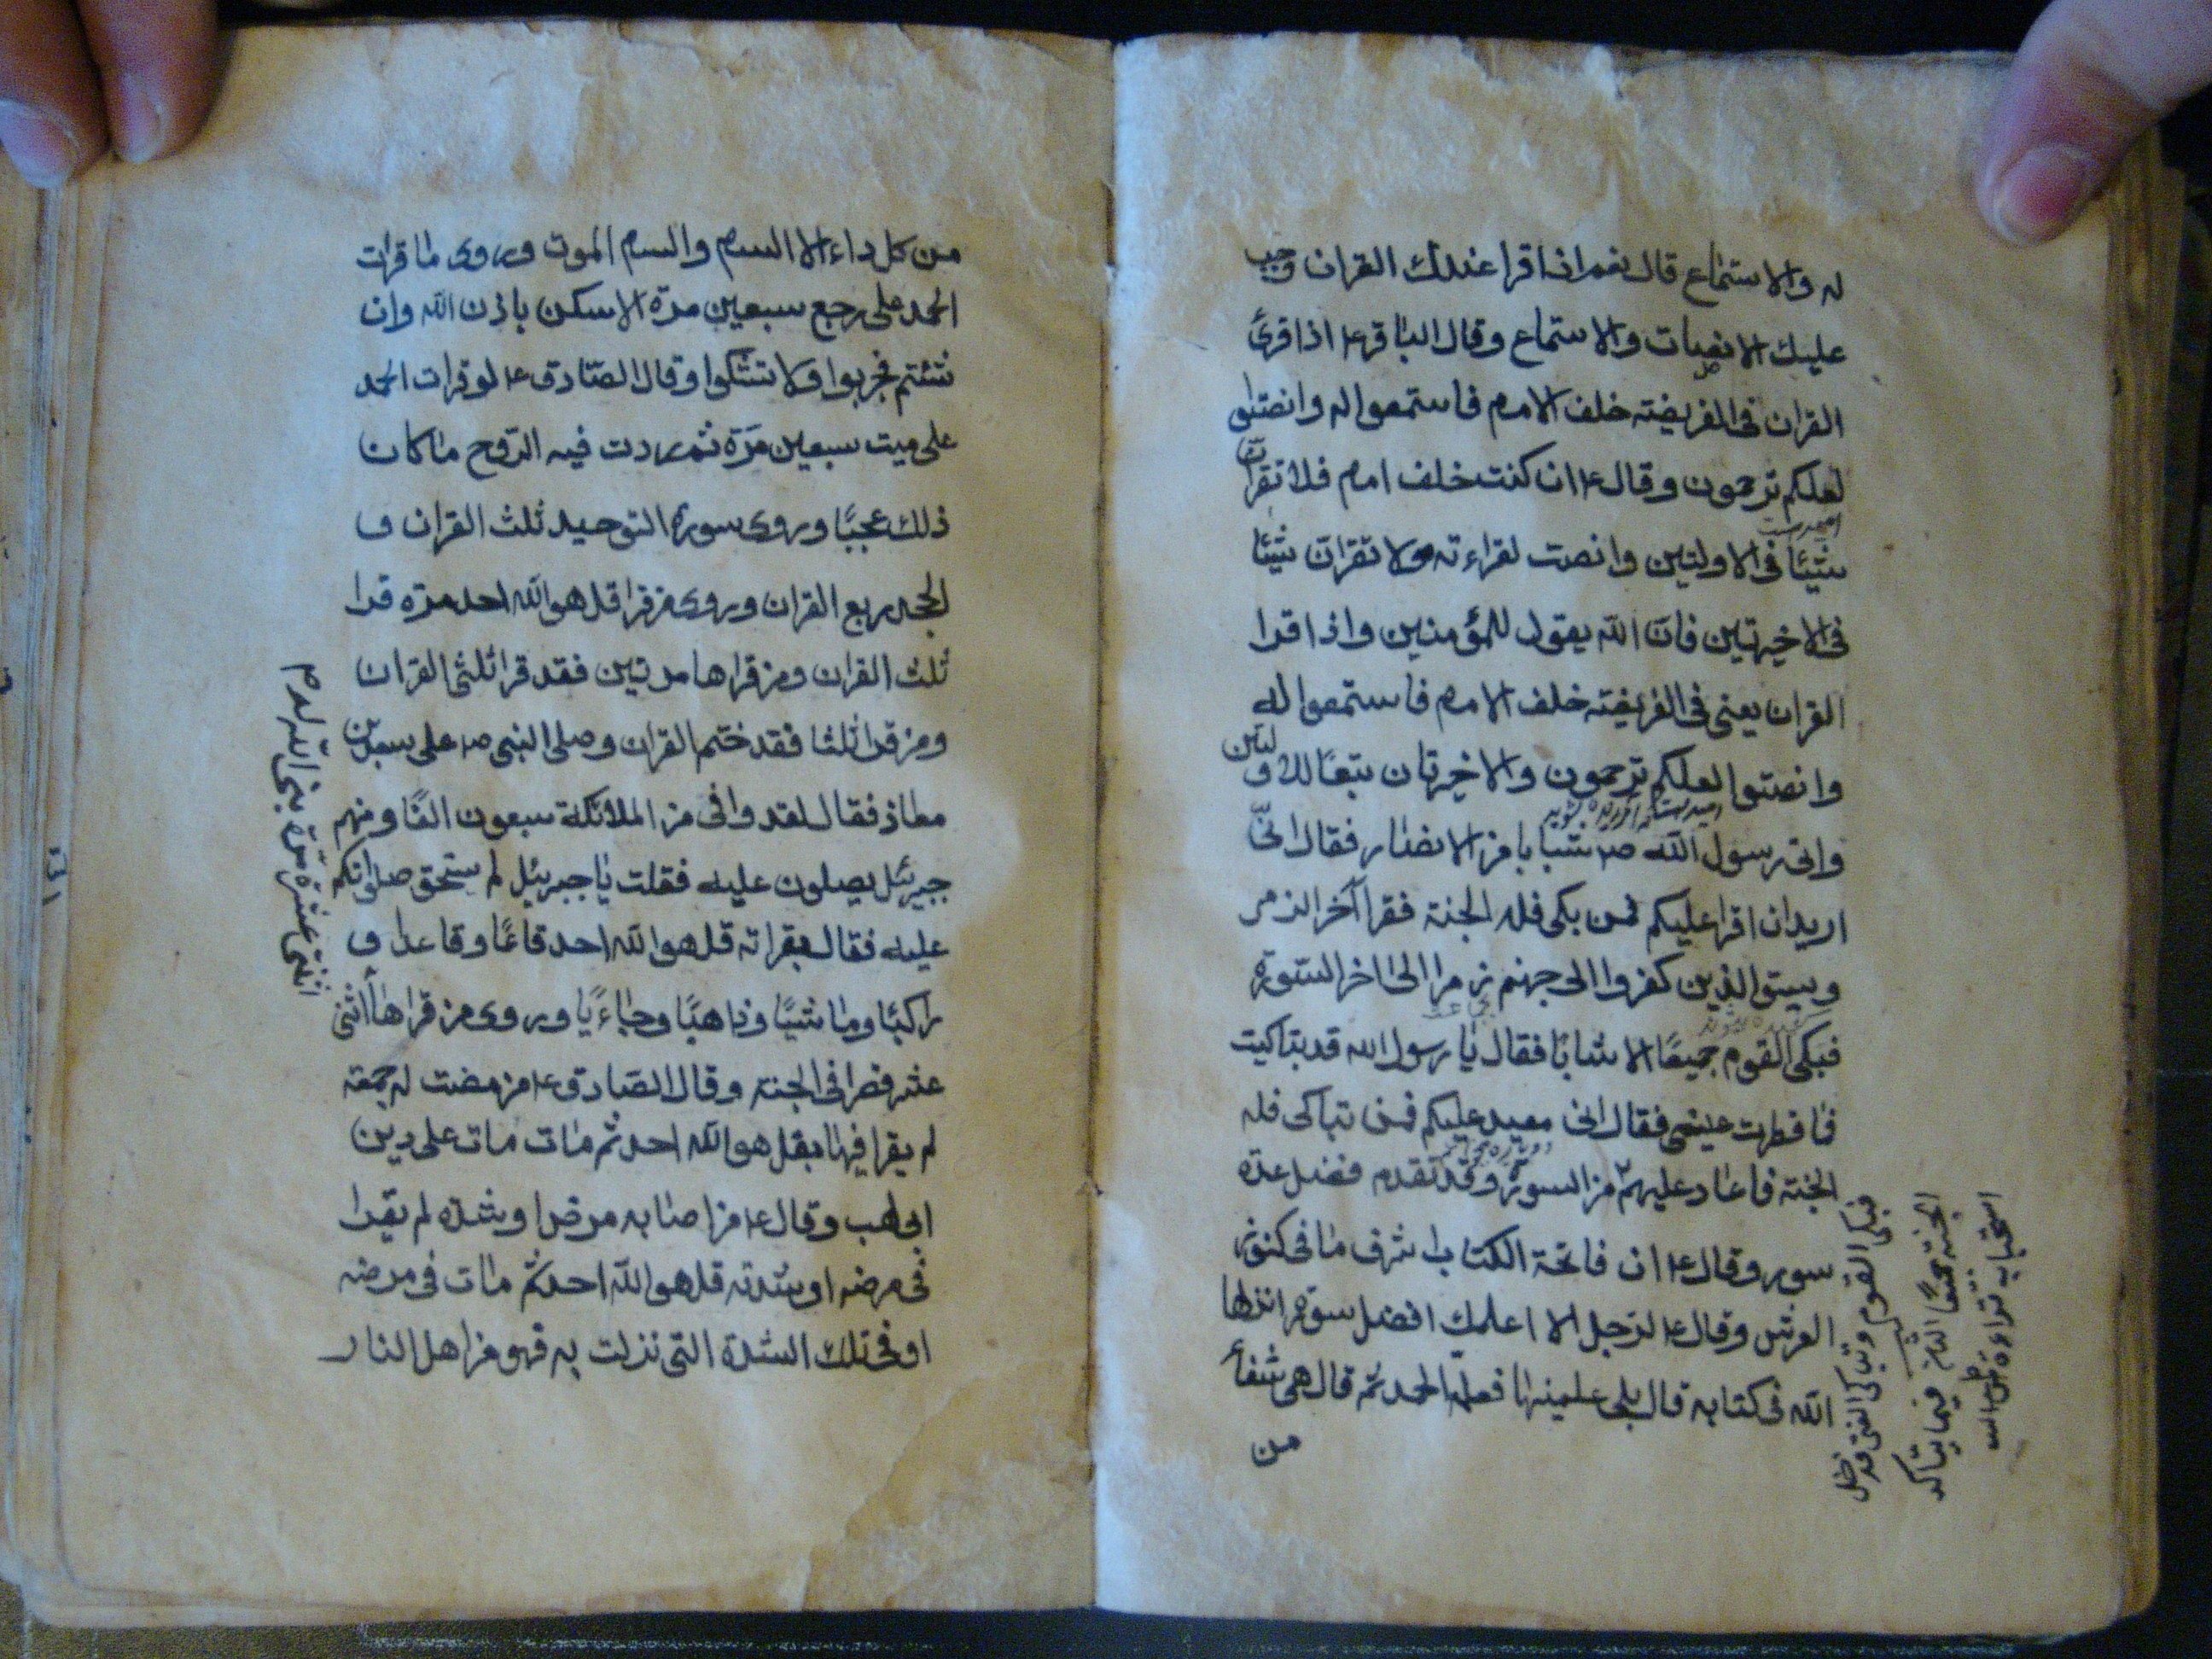 له والاستماع قال نعم اذا قرا عندك القران وجب
عليك الانصات والاستماع وقال الباقر ع اذا قرئ
القران فى الفريضته خلف الامام فاستمعوا له وانصتوا
لعلكم ترحمون وقال ع ان كنت خلف امام فلا تقرأن
شيئا فى الاولتين وانصت لقراءته ولا تقران شيئا
فى الاخيرتين فان الله يقول للمؤمنين واذا قرا
القران يعنى فى الفريضته خلف الامام فاستمعوا له
وانصتوا لعلكم ترحمون والاخيرتان تبعا للاولتين
واتى رسول الله ص شبابا من الانصار فقال انّى
اريد ان اقرا عليكم فمن بكى فله الجنة فقرا آخر الزمر
وسيق الذين كفروا الى جهنم زمرا الى اخر السورة
فبكى القوم جميعا الا شابا فقال يا رسول الله قد تباكيت
فما قطرت عينى فقال انى معيد عليكم فمن تباكى فله
الجنة فاعاد عليهم من السورة وقد تقدم فضل عدة
سور وقال ع ان فاتحة الكتاب اشرف ما فى كنوز
العرش وقال ع لرجل الا اعلمك افضل سورة انزلها
الله فى كتابه قال بلى علمنيها فعلمه الحمد ثم قال هى شفأ
من
فبكى القوم وتباكى الفتى فدخل
الجنة جميعا الثامن فيما يتأكد
استحبابه قراءة
من كل داء الا السام والسام الموت وروى ما قرات
الحمد على وجع سبعين مرة الا سكن باذن الله وان
شئتم فجربوا ولا تشكوا وقال الصّادق ع لو قرات الحمد
على ميت سبعين مرّة ثم ردت فيه الرّوح ما كان
ذلك عجبًا وروى سورة التوحيد ثلث القران و
الجحد ربع القران وروى من قرا قل هو الله احد مرة قرا
ثلث القران ومن قراها مرتين فقد قرا ثلثى القران
ومن قرا ثلثا فقد ختم القران وصلى النبى ص على سعد بن
معاذ فقال لقد وافى من الملائكة سبعون الفًا ومنهم
جبرئيل يصلون عليه فقلت يا جبرئيل لم ستحق صلواتكم
عليه فقال بقراته قل هو الله احد قائمًا وقاعدا و
راكبًا وماشيًا وذاهبًا وجاءيًا وروى من قراها اثنى
عشر قصرا فى الجنة وقال الصّادق ع من مضت له جمعة
لم يقرا فيها بقل هو الله احد ثم مات مات على دين
ابى لهب وقال ع من اصابه مرض او شدة لم يقرا
فى مرضه او شدته قل هو الله احد ثم مات فى مرضه
او فى تلك الشدة التى نزلت به فهو من اهل النار
اثنتى عشرة مرّة بنى الله له